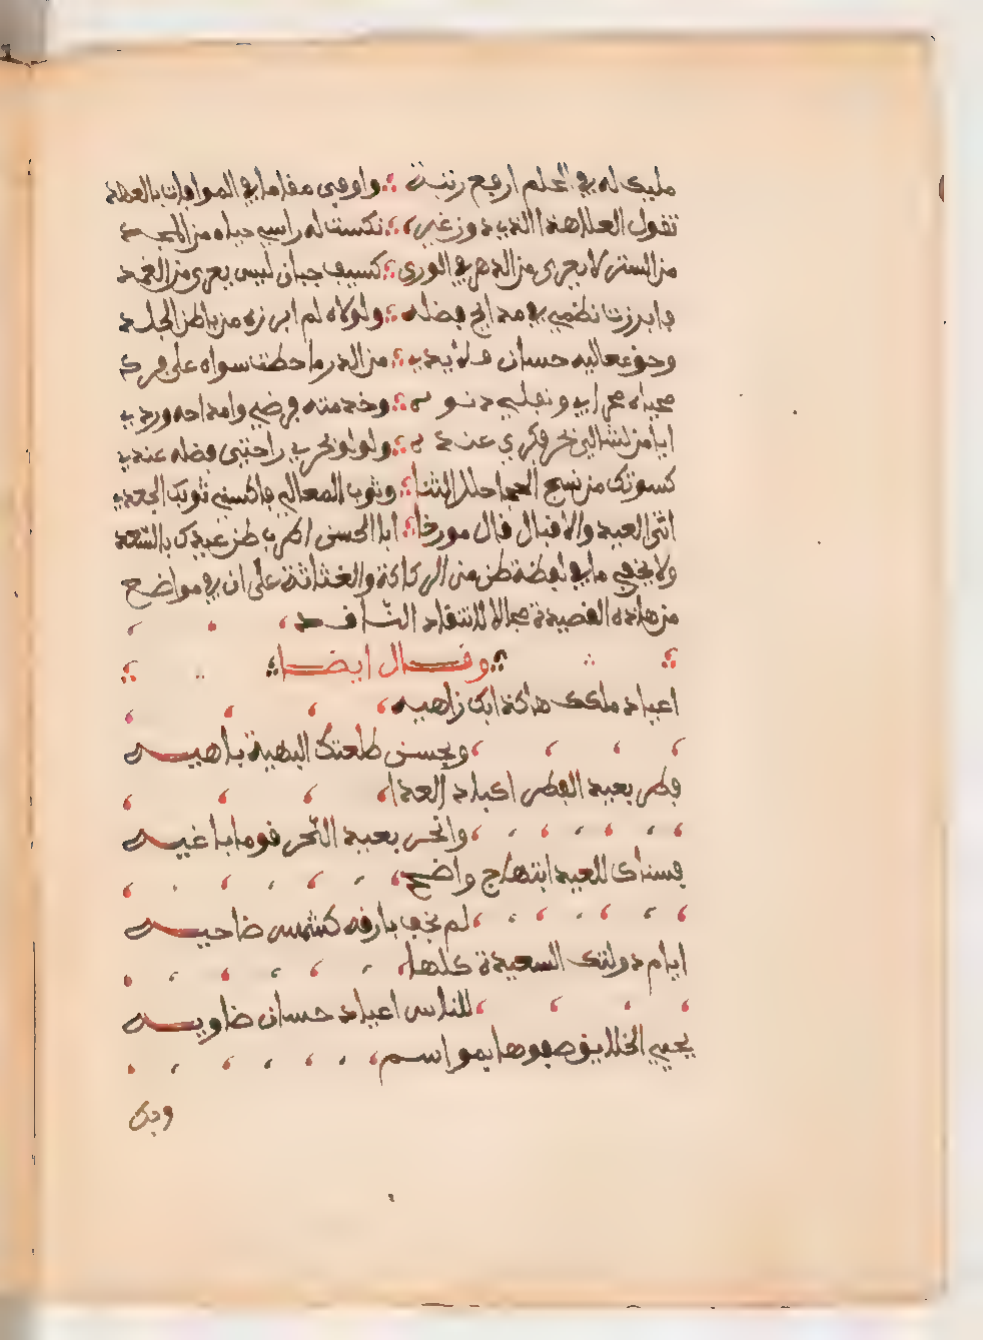 مليك له في الحلم ارفع رتبة واوفى مقاما في الموافات بالعهد
تقول العلا هذا الذي دون غيره نكست له راسي حياء من المجد
من الستر لا يعرى من الدهر في الورى كسيف جبان ليس يعرى من الغمد
فابرزت نظمي في مدايح فضله ولولاه لم ابرزه من باطن الجلد
وحق معاليه حسان قلائدي من الدر ما حطت سواه على فرد
محياه محرابي ونفلي دنو وخدمته فرضي وامداحه وردي
ايا من لئالي نحر فكري عند ولولو نحري راحتي فضله عندي
كسوتك من نسج الحجا حلل الثنا وثوب المعالي فاكسني ثوبك الجعدي
اثنى العيد والاقبال قال مورخا ابا الحسن اطرب طن عيدك بالسعد
ولا يخفى ما في لفظة طن من الركاكة والغثاثة على ان في مواضع
من هاذه القصيدة مجالا للانتقاد الناقد
وقال ايضا
اعياد ملكك هاكذا بك زاهيه
وبحسن طلعتك البهية باهيه
فطر بعيد الفطر اكباد العدا
وانحر بعيد النحر قوما باغيه
فسناك للعيد ابتهاج واضح
لم يخف بارقه كشمس ضاحيه
ايام دولتك السعيدة كلها
للناس اعياد حسان ضاويه
يحيي الخلايق صفوها بمواسم
وبك